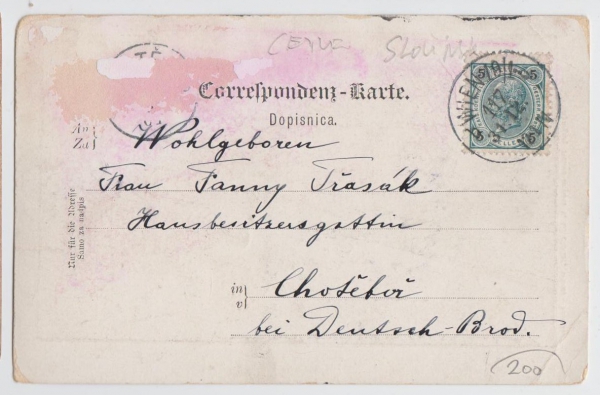 Correspondenz-Karte.
Dopisnica.
An
Za
Wohlgeboren
Frau Fanny Třasák
Hausbesitzersgattin
in
v
Chotěboř
bei Deutsch-Brod.
Nur für die Adresse
Samo za napis
WIEN
5 5
200